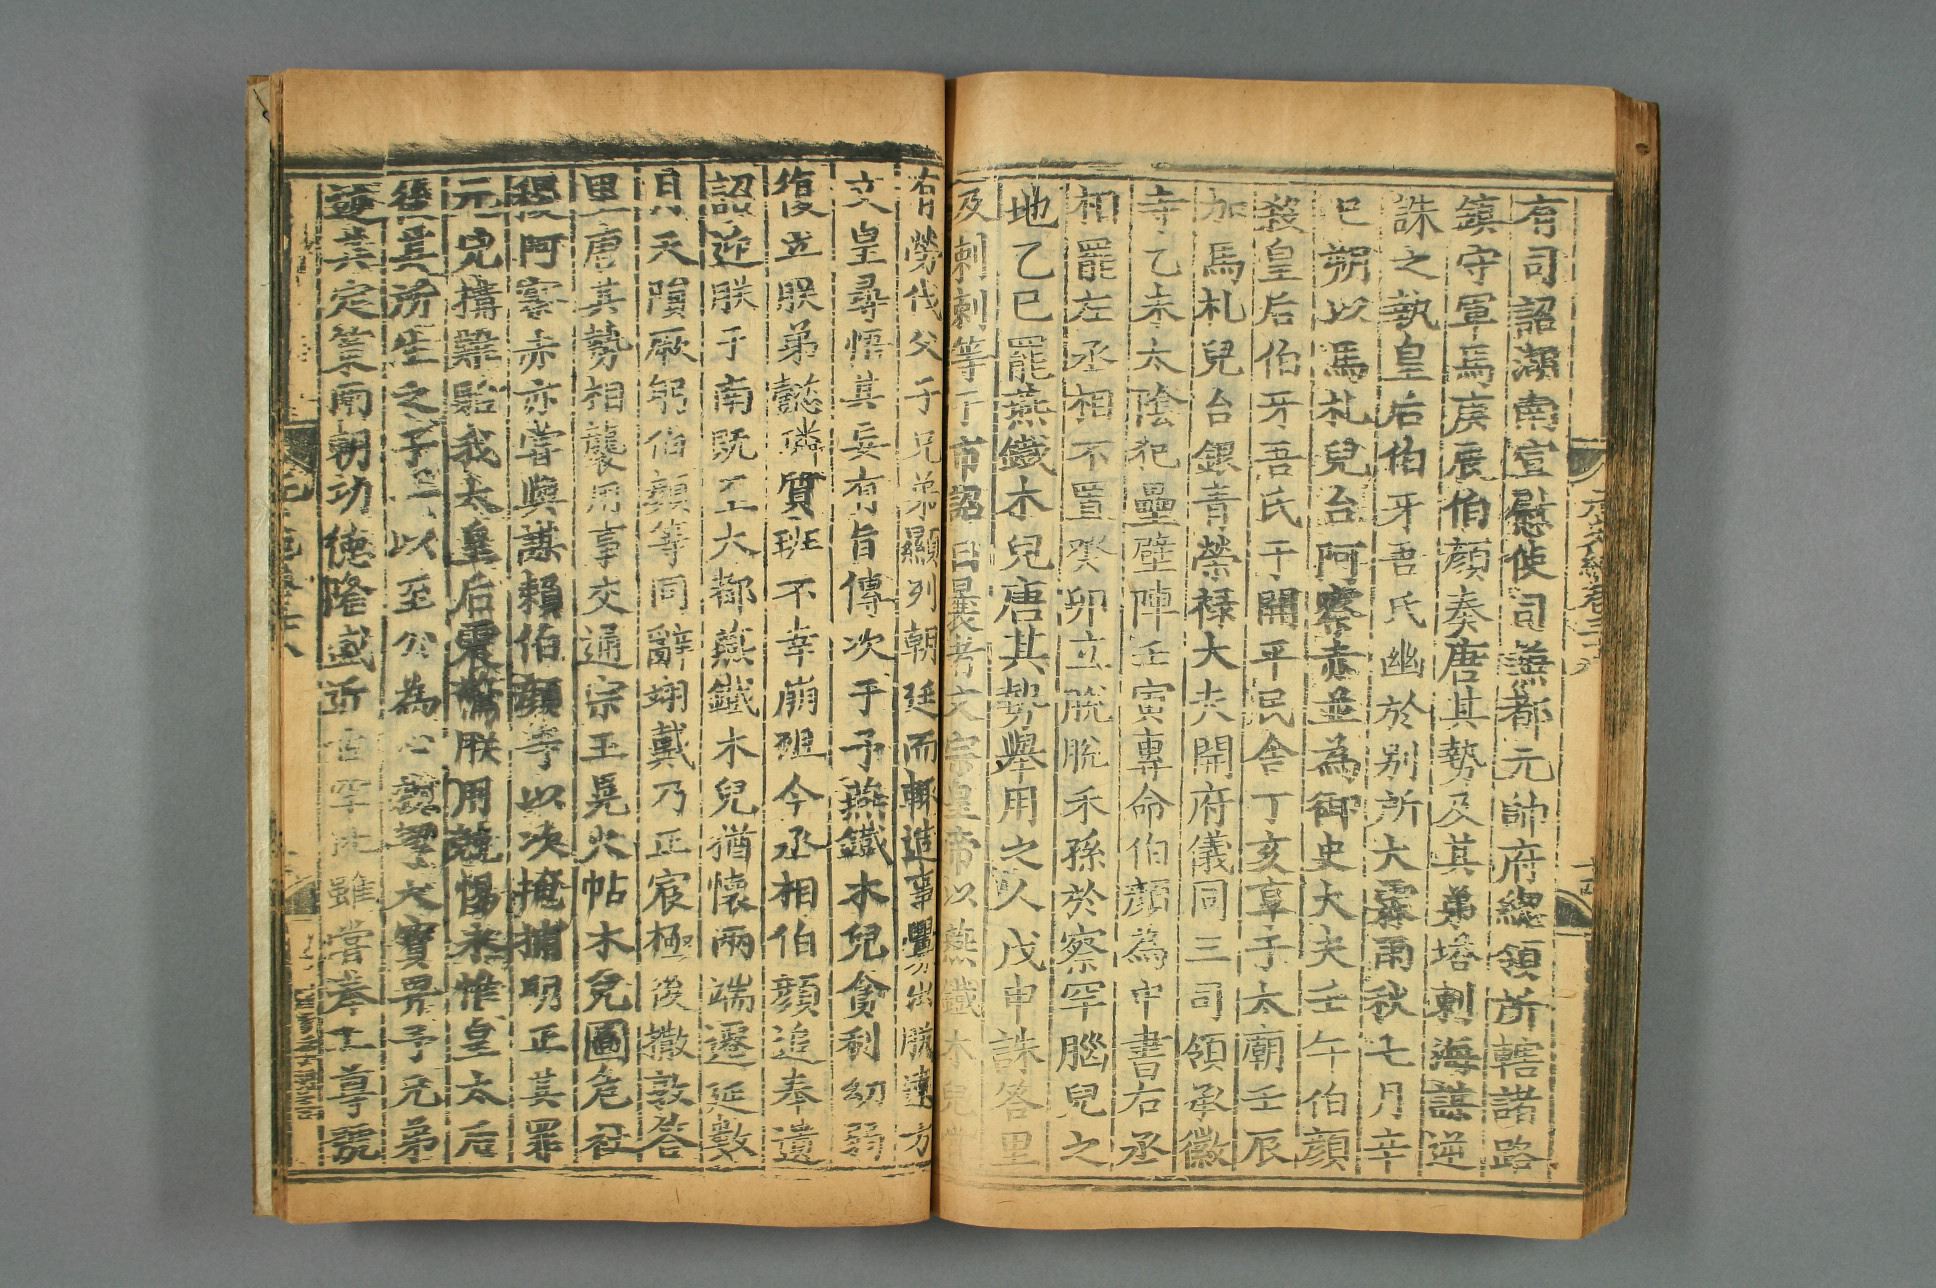 有司詔湖南宣慰使司兼都元帥府總領所轄諸路
鎮守軍馬庚辰伯顏奏唐其勢及其弟塔剌海謀逆
誅之執皇后伯牙吾氏幽於別所大霖雨秋七月辛
巳朔以馬札兒台阿察赤並為御史大夫壬午伯顏
殺皇后伯牙吾氏于開平民舍丁亥享于太廟壬辰
加馬札兒台銀青榮祿大夫開府儀同三司領承徽
寺乙未太陰犯壘壁陣壬寅專命伯顏為中書右丞
相罷左丞相不置癸卯立脫脫禾孫於察罕腦兒之
地乙巳罷燕鐵木兒唐其勢舉用之人戊申誅答里
及剌剌等于市詔曰曩者文宗皇帝以燕鐵木兒嘗
有勞伐父子兄弟顯列朝廷而輒造事釁出朕遠方
文皇尋悟其妄有旨傳次于予燕鐵木兒貪利幼弱
復立朕弟懿璘質班不幸崩殂今丞相伯顏追奉遺
詔迎朕于南既至大都燕鐵木兒猶懷兩端遷延數
月天隕厥躬伯顏等同辭翊戴乃正宸極後撒敦答
里唐其勢相襲用事交通宗王晃火帖木兒圖危社
稷阿察赤亦嘗與謀賴伯顏等以次掩捕明正其罪
元兇搆難貽我太皇后震驚朕用兢惕永惟皇太后
後其所生之子一以至公為心親挈大寶畀予兄弟
迹其定策兩朝功德隆盛近古罕比雖嘗奉上尊號